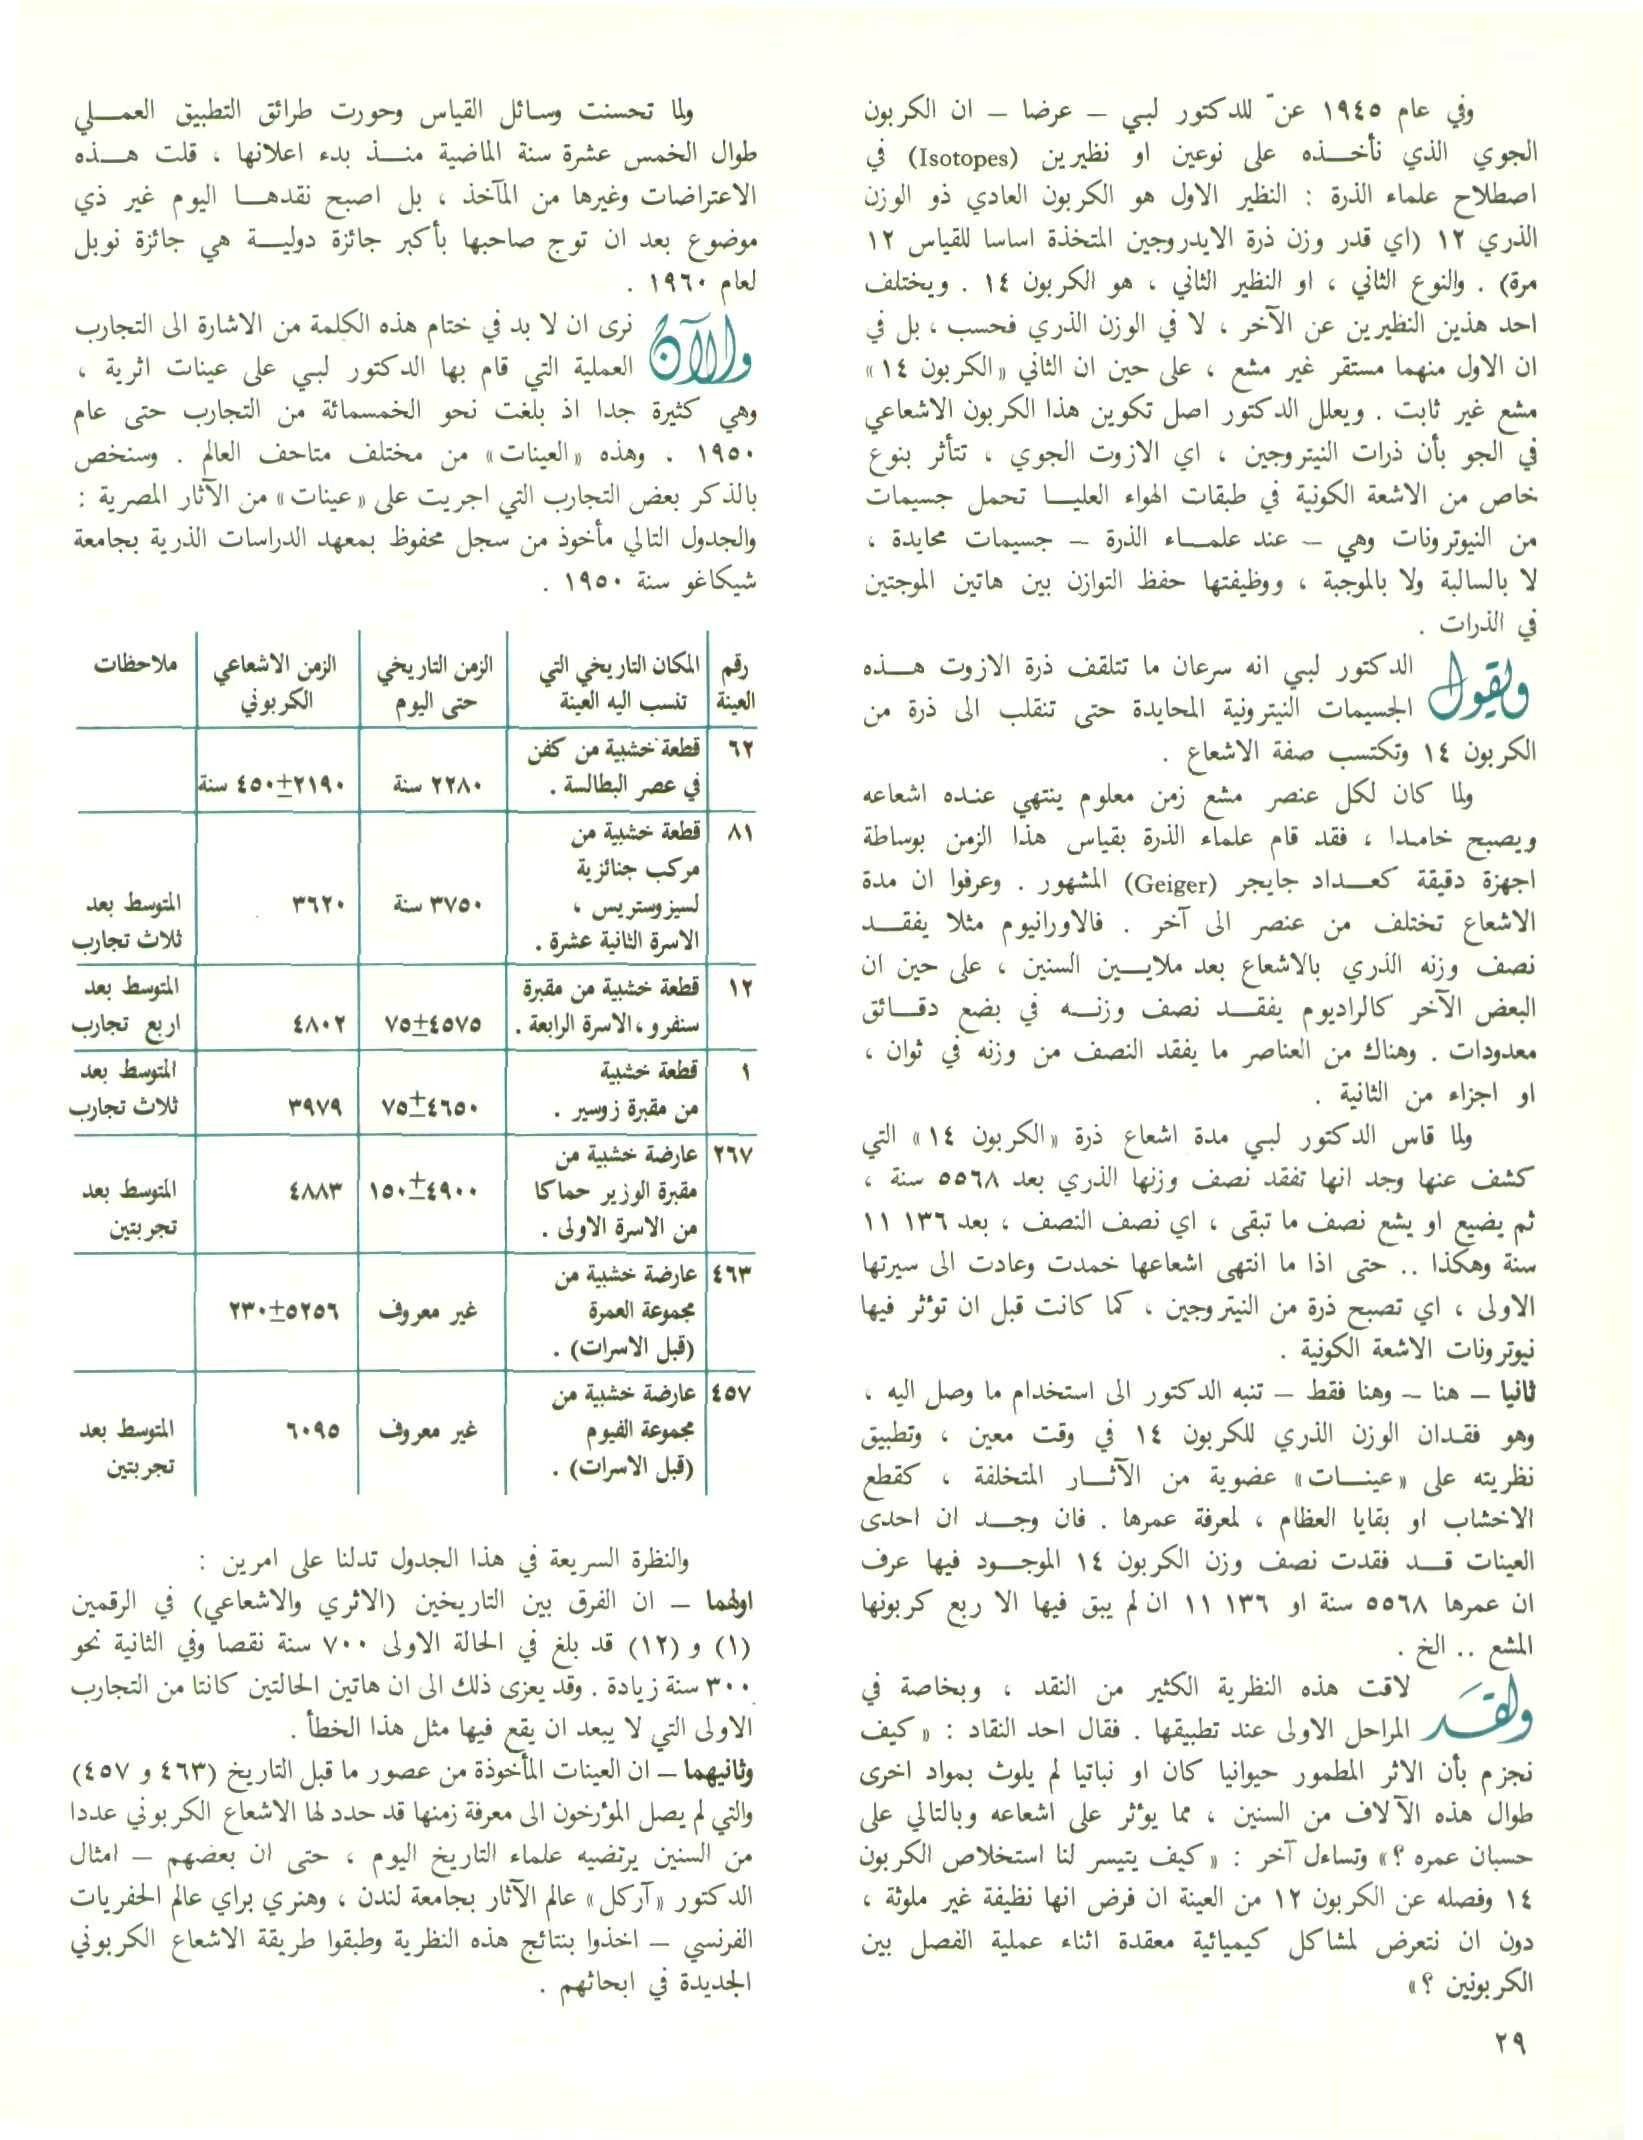 وفي عام ١٩٤٥ عنّ للدكتور لبي – عرضا – ان الكربون
الجوي الذي نأخذه على نوعين او نظيرين (Isotopes) في
اصطلاح علماء الذرة : النظير الاول هو الكربون العادي ذو الوزن
الذري ١٢ (اي قدر وزن ذرة الايدروجين المتخذة اساسا للقياس ١٢
مرة) . والنوع الثاني ، او النظير الثاني ، هو الكربون ١٤ . ويختلف
احد هذين النظيرين عن الآخر ، لا في الوزن الذري فحسب ، بل في
ان الاول منهما مستقر غير مشع ، على حين ان الثاني «الكربون ١٤»
مشع غير ثابت . ويعلل الدكتور اصل تكوين هذا الكربون الاشعاعي
في الجو بأن ذرات النيتروجين ، اي الازوت الجوي ، تتأثر بنوع
خاص من الاشعة الكونية في طبقات الهواء العليا تحمل جسيمات
من النيوترونات وهي – عند علماء الذرة – جسيمات محايدة ،
لا بالسالبة ولا بالموجبة ، ووظيفتها حفظ التوازن بين هاتين الموجتين
في الذرات .
ويقول الدكتور لبي انه سرعان ما تتلقف ذرة الازوت هذه
الجسيمات النيترونية المحايدة حتى تنقلب الى ذرة من
الكربون ١٤ وتكتسب صفة الاشعاع .
ولما كان لكل عنصر مشع زمن معلوم ينتهي عنده اشعاعه
ويصبح خامدا ، فقد قام علماء الذرة بقياس هذا الزمن بوساطة
اجهزة دقيقة كعداد جايجر (Geiger) المشهور . وعرفوا ان مدة
الاشعاع تختلف من عنصر الى آخر . فالاورانيوم مثلا يفقد
نصف وزنه الذري بالاشعاع بعد ملايين السنين ، على حين ان
البعض الآخر كالراديوم يفقد نصف وزنه في بضع دقائق
معدودات . وهناك من العناصر ما يفقد النصف من وزنه في ثوان ،
او اجزاء من الثانية .
ولما قاس الدكتور لبي مدة اشعاع ذرة «الكربون ١٤» التي
كشف عنها وجد انها تفقد نصف وزنها الذري بعد ٥٥٦٨ سنة ،
ثم يضيع او يشع نصف ما تبقى ، اي نصف النصف ، بعد ١٣٦ ١١
سنة وهكذا .. حتى اذا ما انتهى اشعاعها خمدت وعادت الى سيرتها
الاولى ، اي تصبح ذرة من النيتروجين ، كما كانت قبل ان تؤثر فيها
نيوترونات الاشعة الكونية .
ثانيا – هنا – وهنا فقط – تنبه الدكتور الى استخدام ما وصل اليه ،
وهو فقدان الوزن الذري للكربون ١٤ في وقت معين ، وتطبيق
نظريته على «عينات» عضوية من الآثار المتخلفة ، كقطع
الاخشاب او بقايا العظام ، لمعرفة عمرها . فان وجد ان احدى
العينات قد فقدت نصف وزن الكربون ١٤ الموجود فيها عرف
ان عمرها ٥٥٦٨ سنة او ١٣٦ ١١ ان لم يبق فيها الا ربع كربونها
المشع .. الخ .
ولقد لاقت هذه النظرية الكثير من النقد ، وبخاصة في
المراحل الاولى عند تطبيقها . فقال احد النقاد : «كيف
نجزم بأن الاثر المطمور حيوانيا كان او نباتيا لم يلوث بمواد اخرى
طوال هذه الآلاف من السنين ، مما يؤثر على اشعاعه وبالتالي على
حسبان عمره ؟» وتساءل آخر : «كيف يتيسر لنا استخلاص الكربون
١٤ وفصله عن الكربون ١٢ من العينة ان فرض انها نظيفة غير ملوثة ،
دون ان نتعرض لمشاكل كيميائية معقدة اثناء عملية الفصل بين
الكربونين ؟»
ولما تحسنت وسائل القياس وحورت طرائق التطبيق العملي
طوال الخمس عشرة سنة الماضية منذ بدء اعلانها ، قلت هذه
الاعتراضات وغيرها من المآخذ ، بل اصبح نقدها اليوم غير ذي
موضوع بعد ان توج صاحبها بأكبر جائزة دولية هي جائزة نوبل
لعام ١٩٦٠ .
والآن نرى ان لا بد في ختام هذه الكلمة من الاشارة الى التجارب
العملية التي قام بها الدكتور لبي على عينات اثرية ،
وهي كثيرة جدا اذ بلغت نحو الخمسمائة من التجارب حتى عام
١٩٥٠ . وهذه «العينات» من مختلف متاحف العالم . وسنخص
بالذكر بعض التجارب التي اجريت على «عينات» من الآثار المصرية :
والجدول التالي مأخوذ من سجل محفوظ بمعهد الدراسات الذرية بجامعة
شيكاغو سنة ١٩٥٠ .
رقم المكان التاريخي التي الزمن التاريخي الزمن الاشعاعي ملاحظات
العينة تنسب اليه العينة حتى اليوم الكربوني
٦٢ قطعة خشبية من كفن
في عصر البطالسة . ٢٢٨٠ سنة ٢١٩٠±٤٥٠ سنة
٨١ قطعة خشبية من
مركب جنائزية
لسيزوستريس ، ٣٧٥٠ سنة ٣٦٢٠ المتوسط بعد
الاسرة الثانية عشرة . ثلاث تجارب
١٢ قطعة خشبية من مقبرة المتوسط بعد
سنفرو ، الاسرة الرابعة . ٤٥٧٥±٧٥ ٤٨٠٢ اربع تجارب
١ قطعة خشبية المتوسط بعد
من مقبرة زوسير . ٤٦٥٠±٧٥ ٣٩٧٩ ثلاث تجارب
٢٦٧ عارضة خشبية من
مقبرة الوزير حماكا ٤٩٠٠±١٥٠ ٤٨٨٣ المتوسط بعد
من الاسرة الاولى . تجربتين
٤٦٣ عارضة خشبية من
مجموعة العمرة غير معروف ٥٢٥٦±٢٣٠
(قبل الاسرات) .
٤٥٧ عارضة خشبية من
مجموعة الفيوم غير معروف ٦٠٩٥ المتوسط بعد
(قبل الاسرات) . تجربتين
والنظرة السريعة في هذا الجدول تدلنا على امرين :
اولهما – ان الفرق بين التاريخين (الاثري والاشعاعي) في الرقمين
(١) و (١٢) قد بلغ في الحالة الاولى ٧٠٠ سنة نقصا وفي الثانية نحو
٣٠٠ سنة زيادة . وقد يعزى ذلك الى ان هاتين الحالتين كانتا من التجارب
الاولى التي لا يبعد ان يقع فيها مثل هذا الخطأ .
وثانيهما – ان العينات المأخوذة من عصور ما قبل التاريخ (٤٦٣ و ٤٥٧)
والتي لم يصل المؤرخون الى معرفة زمنها قد حدد لها الاشعاع الكربوني عددا
من السنين يرتضيه علماء التاريخ اليوم ، حتى ان بعضهم – امثال
الدكتور «آركل» عالم الآثار بجامعة لندن ، وهنري براي عالم الحفريات
الفرنسي – اخذوا بنتائج هذه النظرية وطبقوا طريقة الاشعاع الكربوني
الجديدة في ابحاثهم .
٢٩